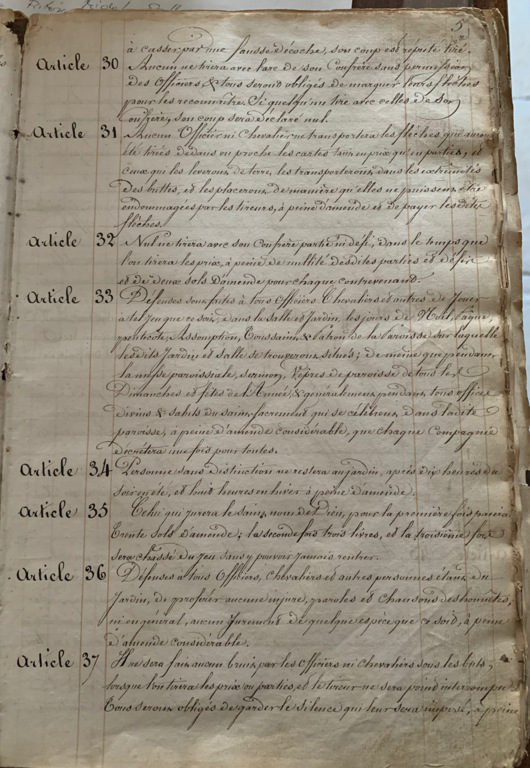 5
à casser par une fausse décoche, son coup est réputé tiré.
Article 30 Aucun ne tirera avec l'arc de son Confrère sans permission
des Officiers, & tous seront obligés de marquer leurs flêches
pour les reconnaître. Si quelqu'un tire avec celles de son
Confrère, son coup sera déclaré nul.
Article 31 Aucun Officier ni Chevalier ne transportera les flêches qui auront
été tirées dedans ou proche les cartes soit en prix qu'en parties, et
ceux qui les leveront de terre, les transporteront dans les extrêmités
des buttes, et les placeront de manière qu'elles ne puissent être
endommagées par les tireurs, à peine d'amende et de payer lesdites
flêches.
Article 32 Nul ne tirera avec son Confrère partie ni défi, dans le temps que
l'on tirera les prix, à peine de nullité desdites parties et défis
et de deux sols d'amende pour chaque contrevenant.
Article 33 Défenses sont faites à tous Officiers Chevaliers et autres de Jouer
à tel Jeu que ce soit, dans la salle et Jardin, les jours de Noël, Pâque,
Pentecôte, Assomption, Toussaint, & Patron de la Paroisse sur laquelle
lesdits Jardin et Salle se trouveront situés; de même que pendant
la messe paroissiale, sermon, Vêpres de paroisse de tous les
Dimanches et fêtes de l'Année, & généralement pendant tous offices
divins & saluts du saint sacrement qui se célébrent, dans ladite
paroisse, à peine d'amende considérable, que chaque Compagnie
décrétera une fois pour toutes.
Article 34 Personne sans distinction ne restera au jardin, après dix heures du
soir en été, et huit heures en hiver à peine d'amende.
Article 35 Celui qui jurera le saint nom de Dieu, pour la première fois paiera
Trente sols d'amende; la seconde fois trois livres, et la troisième fois
sera chassé du Jeu sans y pouvoir jamais rentrer.
Article 36 Défenses à tous Officiers, Chevaliers et autres personnes étant au
Jardin, de proférer aucune injure, paroles et Chansons deshonnêtes,
ni en général, aucun Jurement de quelque espèce que ce soit, à peine
d'amende considérable.
Article 37 Il ne sera fait aucun bruit, par les Officiers ni Chevaliers sous les buts,
lorsque l'on tirera les prix ou parties, et le tireur ne sera point interrompu
Tous seront obligés de garder le silence qui leur sera imposé, à peine